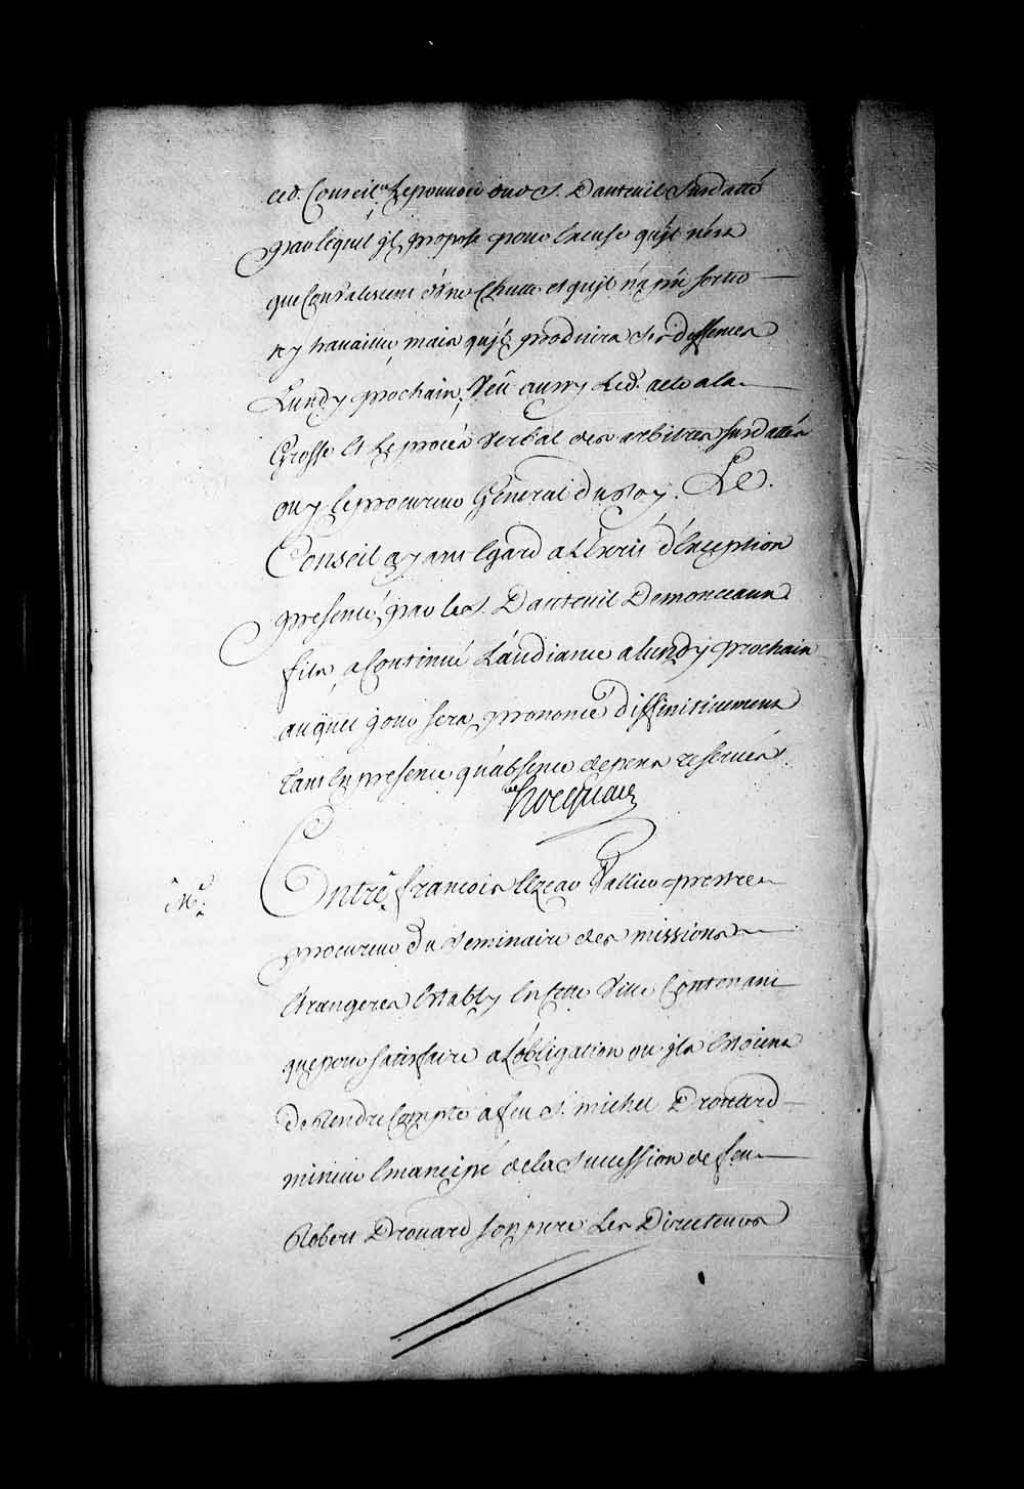 ced. Conseil le pouvoir dud. S. Dauteuil susdatté
par lequel jl propose pour Excuse qu'jl n'est
que Convalescent d'une Chutte et qu'jl n'a pû sortir
ny travailler, mais qu'jl produira ses deffenses
Lundy prochain, Veû aussy Led. acte a la
Grosse Et Le procés Verbal des arbitres susdattés
ouy le procureur Général du Roy. Le
Conseil ayant Egard a L'Ecrit d'Exception
presenté par le S. Dauteuil Demonceaux
fils, a Continué L'audiance a lundy prochain
auquel jour sera prononcé diffinitivement
tant En presence qu'absence depens reservés.
hocquart
Me.
Entre. françois Elzear Vallier prestre
procureur du Seminaire des missions
Etrangeres Estably En Cette Ville Contenant
que pour satisfaire a L'obligation ou jls Estoient
De Rendre Compte a feu S. michel Drouard
mineur Emancipé de la Sucession de feu
Robert Drouard son pere Les Directeurs